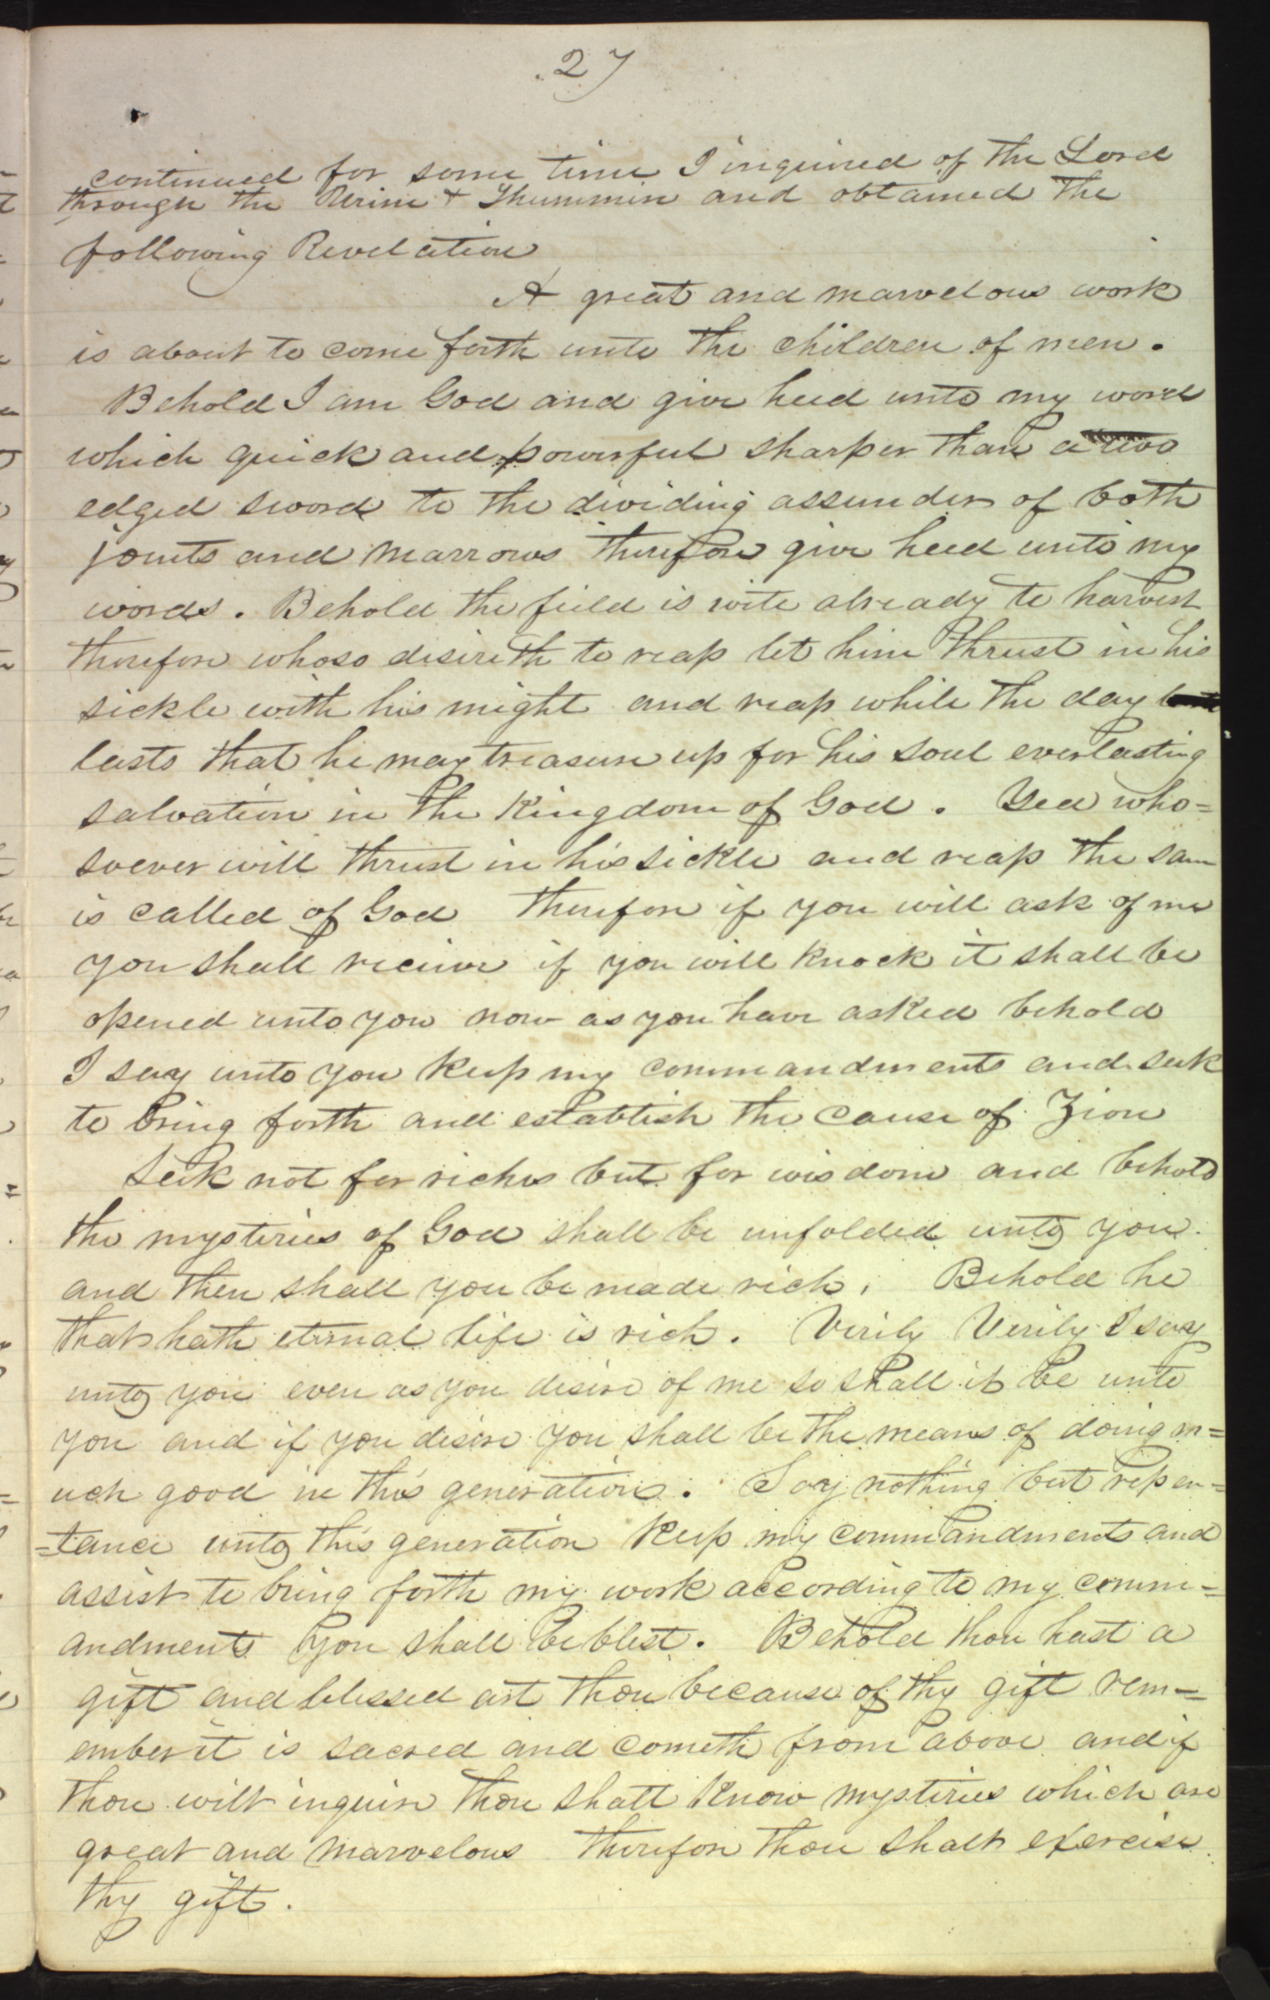 27
continued for some time I inquired of the Lord
through the Urim & Thummin and obtained the
following Revelation
A great and marvelous work
is about to come forth unto the children of men.
Behold I am God and give heed unto my word
which quick and powerful sharper than a two
edged sword to the dividing assunder of both
joints and marrows therefore give heed unto my
words. Behold the field is wite already to harvest
therefore whoso desireth to reap let him thrust in his
sickle with his might and reap while the day
lasts that he may treasure up for his soul everlasting
salvation in the Kingdom of God. Yea who=
soever will thrust in his sickle and reap the same
is called of God therefore if you will ask of me
you shall recieve if you will knock it shall be
opened unto you now as you have asked behold
I say unto you keep my commandments and seek
to bring forth and establish the cause of Zion
Seek not for riches but for wisdom and behold
the mysteries of God shall be unfolded unto you.
and then shall you be made rich. Behold he
that hath eternal life is rich. Verily Verily I say
unto you even as you desire of me so shall it be unto
you and if you desire you shall be the means of doing m=
uch good in this generation. Say nothing but repen=
=tance unto this generation Keep my commandments and
assist to bring forth my work according to my comm=
andments you shall be blest. Behold thou hast a
gift and blessed art thou because of thy gift rem=
ember it is sacred and cometh from above and if
thou wilt inquire thou shalt know mysteries which are
great and marvelous therefore thou shalt exercise
thy gift.